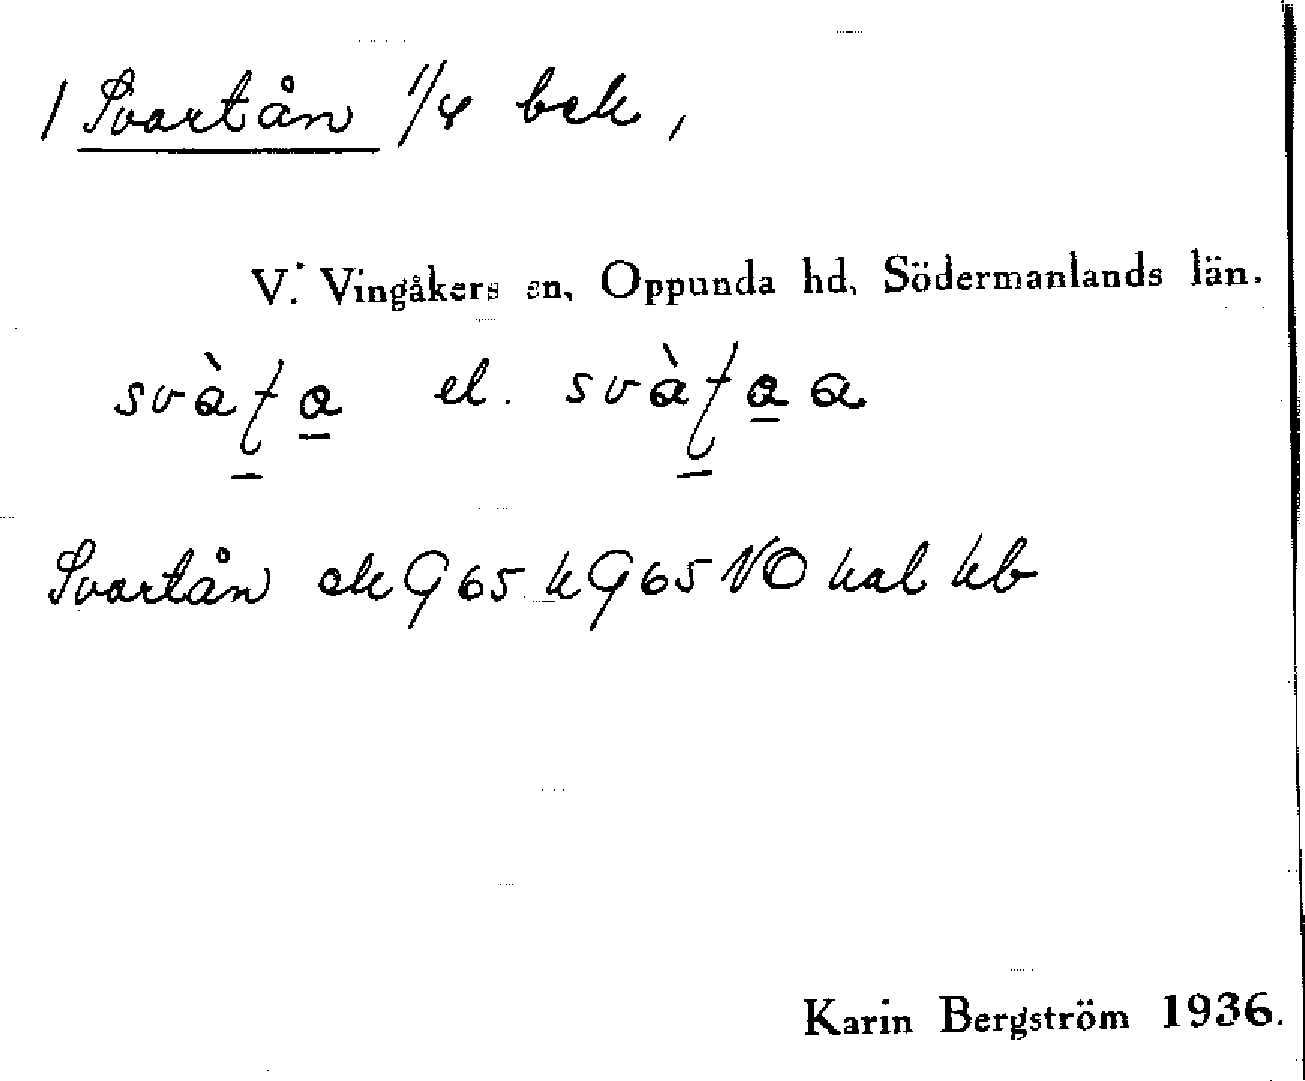 1 Svartån 1/4 bek,
V. Vingåkers sn, Oppunda hd, Södermanlands län.
el.
Svartån ek G 65 k G 65 NO kal kb
Karin Bergström 1936.